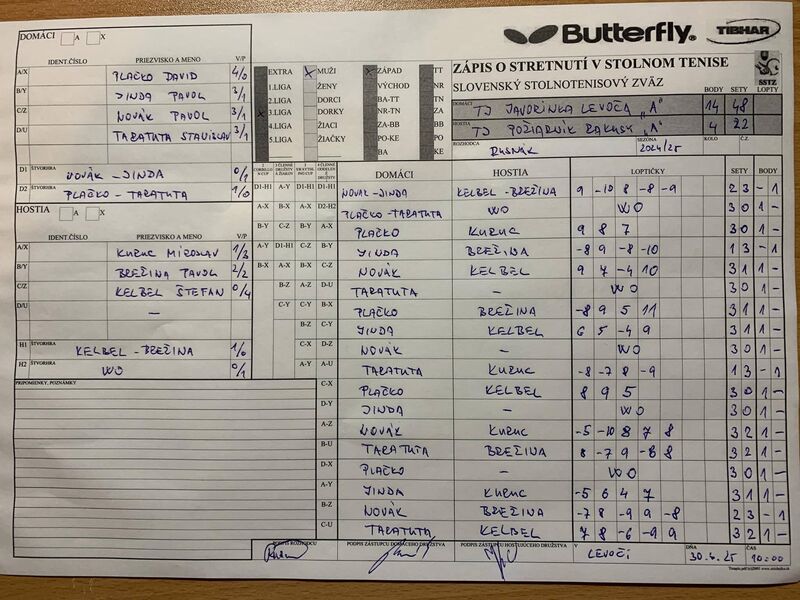 DOMÁCI A X
IDENT.ČÍSLO PRIEZVISKO A MENO V/P
A/X PLAČKO DAVID 4/0
B/Y JINDA PAVOL 3/1
C/Z NOVÁK PAVOL 3/1
D/U TARATUTA STANISLAV 3/1
D1 ŠTVORHRA NOVÁK - JINDA 0/1
D2 ŠTVORHRA PLAČKO - TARATUTA 1/0
HOSTIA A X
IDENT.ČÍSLO PRIEZVISKO A MENO V/P
A/X KURUC MIROSLAV 1/3
B/Y BREŽINA PAVOL 2/2
C/Z KELBEL ŠTEFAN 0/4
D/U —
H1 ŠTVORHRA KELBEL - BREŽINA 1/0
H2 ŠTVORHRA WO 0/1
PRIPOMIENKY, POZNÁMKY
Butterfly. TIBHAR
SSTZ
ZÁPIS O STRETNUTÍ V STOLNOM TENISE
SLOVENSKÝ STOLNOTENISOVÝ ZVÄZ
BODY SETY LOPTY
EXTRA X MUŽI X ZÁPAD TT
1.LIGA ŽENY VÝCHOD NR
2.LIGA DORCI BA-TT TN
X 3.LIGA DORKY NR-TN ZA
4.LIGA ŽIACI ZA-BB BB
5.LIGA ŽIAČKY PO-KE PO
BA KE
DOMÁCI TJ JAVORINKA LEVOČA "A" 14 48
HOSTIA TJ POŽIARNIK RAKUSY "A" 4 22
ROZHODCA RUSNÁK SEZÓNA 2024/25 KOLO Č.Z.
DOMÁCI HOSTIA LOPTIČKY SETY BODY
D1-H1 A-Y D1-H1 D1-H1 NOVÁK - JINDA KELBEL - BREŽINA 9 -10 8 -8 -9 2 3 - 1
A-X B-X A-X D2-H2 PLAČKO - TARATUTA WO WO 3 0 1 -
B-Y C-Z B-Y A-X PLAČKO KURUC 9 8 7 3 0 1 -
A-Y D1-H1 C-Z B-Y JINDA BREŽINA -8 9 -8 -10 1 3 - 1
B-X A-X B-X C-Z NOVÁK KELBEL 9 7 -4 10 3 1 1 -
B-Z A-Z D-U TARATUTA — WO 3 0 1 -
C-Y C-Y B-X PLAČKO BREŽINA -8 9 5 11 3 1 1 -
B-Z C-Y JINDA KELBEL 6 5 -4 9 3 1 1 -
C-X D-Z NOVÁK — WO 3 0 1 -
A-Y A-U TARATUTA KURUC -8 -7 8 -9 1 3 - 1
C-X PLAČKO KELBEL 8 9 5 3 0 1 -
D-Y JINDA — WO 3 0 1 -
A-Z NOVÁK KURUC -5 -10 8 7 8 3 2 1 -
B-U TARATUTA BREŽINA 8 -7 9 -8 8 3 2 1 -
D-X PLAČKO — WO 3 0 1 -
A-Y JINDA KURUC -5 6 4 7 3 1 1 -
B-Z NOVÁK BREŽINA -7 8 -9 9 -8 2 3 - 1
C-U TARATUTA KELBEL 7 8 -6 -9 9 3 2 1 -
PODPIS ROZHODCU PODPIS ZÁSTUPCU DOMÁCEHO DRUŽSTVA PODPIS ZÁSTUPCU HOSŤUJÚCEHO DRUŽSTVA V LEVOČI DŇA 30.6.25 ČAS 10:00